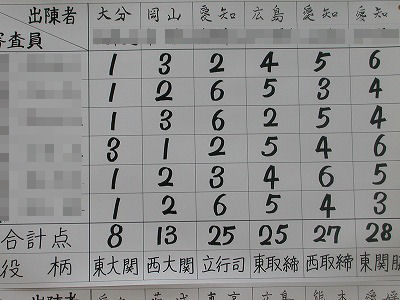 出陳者 大分 岡山 愛知 広島 愛知 愛知
審査員
1 3 2 4 5 6
1 2 6 5 3 4
1 3 6 2 5 4
3 1 2 5 4 6
1 2 3 4 6 5
1 2 6 5 4 3
合計点 8 13 25 25 27 28
役柄 東大関 西大関 立行司 東取締 西取締 東関脇
出陳者